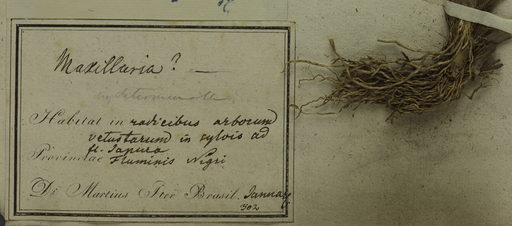 Maxillaria? —
Habitat in radicibus arborum
vetustarum in sylvis ad
fl. Japura
Provinciae Fluminis Nigri
Dr. Martius Iter Brasil.